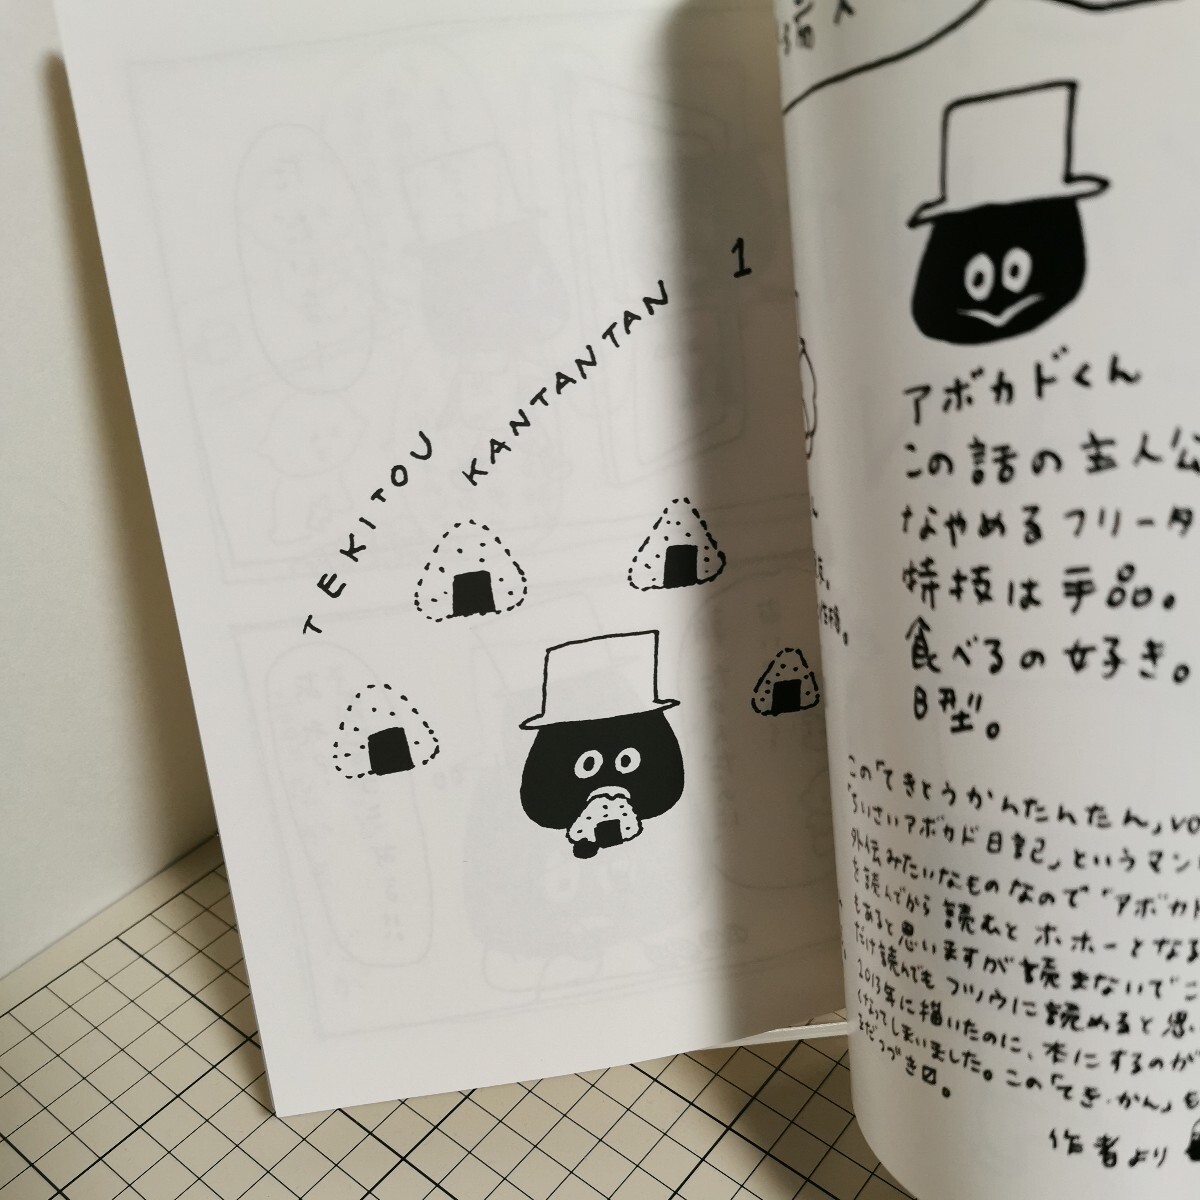 TEKITOU
KANTANTAN
1
アボカドくん
この話の主人公
なやめるフリータ
特技は手品。
食べるの好き。
B型。
この「てきとうかんたんたん」vo
「ちいさいアボカド日記」というマン
外伝みたいなものなので「アボカド
を読んでから読むとホホーとなる
もあると思いますが読まないでこ
だけ読んでもフツウに読めると思い
2013年に描いたのに、本にするのが
くなってしまいました。この「てき・かん」も
まだつづき
作者より